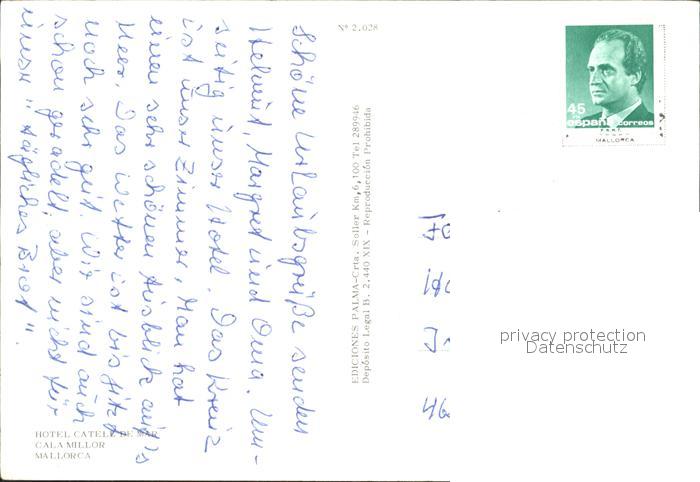 Nº 2.028
Schöne Urlaubsgrüße senden
Helmut, Margret und Oma. Um-
seitig unser Hotel. Das Kreuz
ist unser Zimmer, Man hat
einen sehr schönen Ausblick auf's
Meer. Das Wetter ist bis jetzt
noch sehr gut. Wir sind auch
schon geradelt, aber nicht für
unser "tägliches Brot".
EDICIONES PALMA-Crta. Soller Km, 6,100 Tel 289946
Depósito Legal B. 2.440 XIX - Reproducción Prohibida
HOTEL CATEL DE MAR
CALA MILLOR
MALLORCA
45
españa correos
MALLORCA
46
privacy protection
Datenschutz